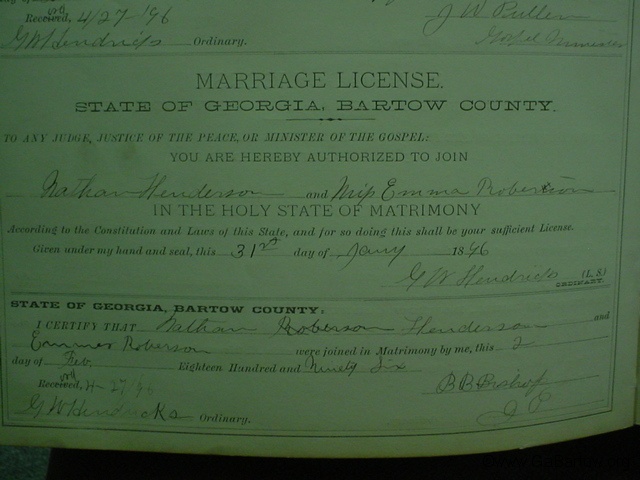 Received, 4/27/96
J W Pullen
G W Hendricks Ordinary.
Gospel Minister
MARRIAGE LICENSE.
STATE OF GEORGIA, BARTOW COUNTY.
TO ANY JUDGE, JUSTICE OF THE PEACE, OR MINISTER OF THE GOSPEL:
YOU ARE HEREBY AUTHORIZED TO JOIN
Nathan Henderson and Miss Emma Roberson
IN THE HOLY STATE OF MATRIMONY
According to the Constitution and Laws of this State, and for so doing this shall be your sufficient License.
Given under my hand and seal, this 31st day of Jany 1896
G W Hendricks (L. S.)
ORDINARY.
STATE OF GEORGIA, BARTOW COUNTY:
I CERTIFY THAT Nathan Roberson Henderson and
Emmer Roberson were joined in Matrimony by me, this 2
day of Feb. Eighteen Hundred and Ninety Six
Received, 4-27/96 B. B. Bishop
G W Hendricks Ordinary. J P